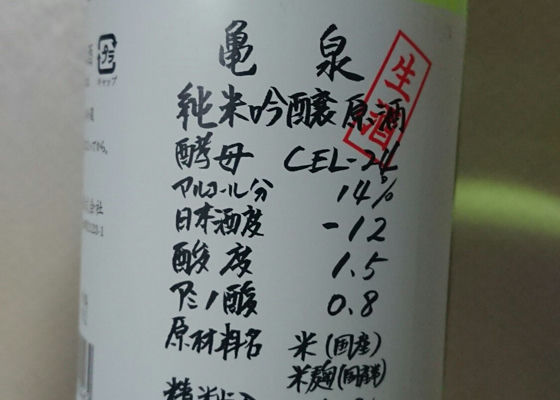 亀 泉
生酒
純米吟醸原酒
酵母 CEL-24
アルコール分 14%
日本酒度 -12
酸度 1.5
アミノ酸 0.8
原材料名 米(国産)
米麹(国産)
キャップ